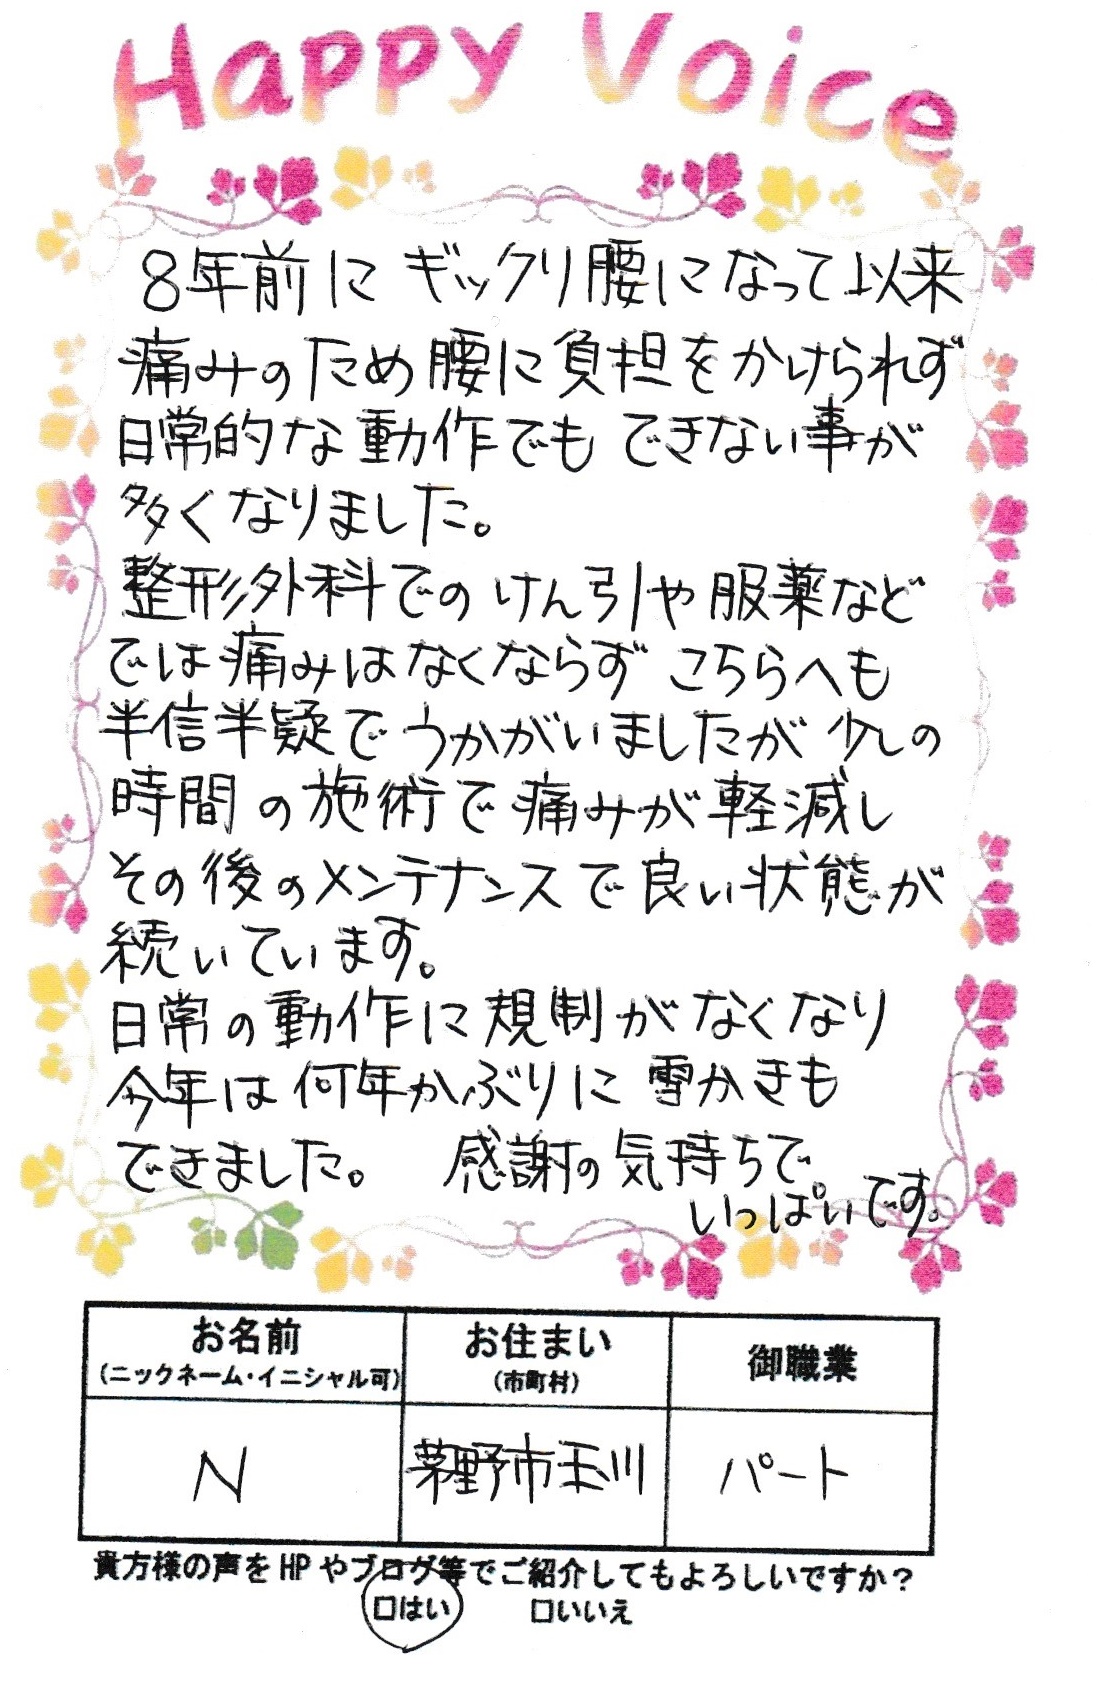 Happy Voice
8年前にギックリ腰になって以来
痛みのため腰に負担をかけられず
日常的な動作でもできない事が
多くなりました。
整形外科でのけん引や服薬など
では痛みはなくならずこちらへも
半信半疑でうかがいましたが少しの
時間の施術で痛みが軽減し
その後のメンテナンスで良い状態が
続いています。
日常の動作に規制がなくなり
今年は何年かぶりに雪かきも
できました。 感謝の気持ちで
いっぱいです。
お名前 お住まい 御職業
(ニックネーム・イニシャル可) (市町村)
N 茅野市玉川 パート
貴方様の声をHPやブログ等でご紹介してもよろしいですか?
□はい □いいえ